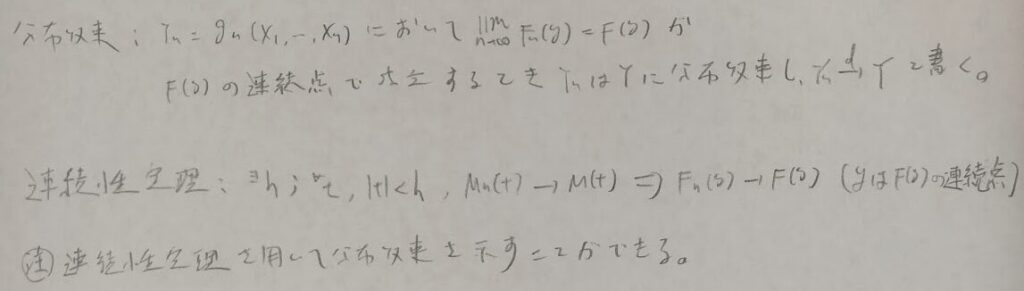 分布収束: Yn = gn(X1,…,Xn) において lim n→∞ Fn(y) = F(y) が
F(y) の連続点で成立するとき Yn は Y に分布収束し、Yn →d Y と書く。
連続性定理: ∃h; ∀t, |t|<h, Mn(t) → M(t) ⇒ Fn(y) → F(y) (yはF(y)の連続点)
注 連続性定理を用いて分布収束を示すことができる。